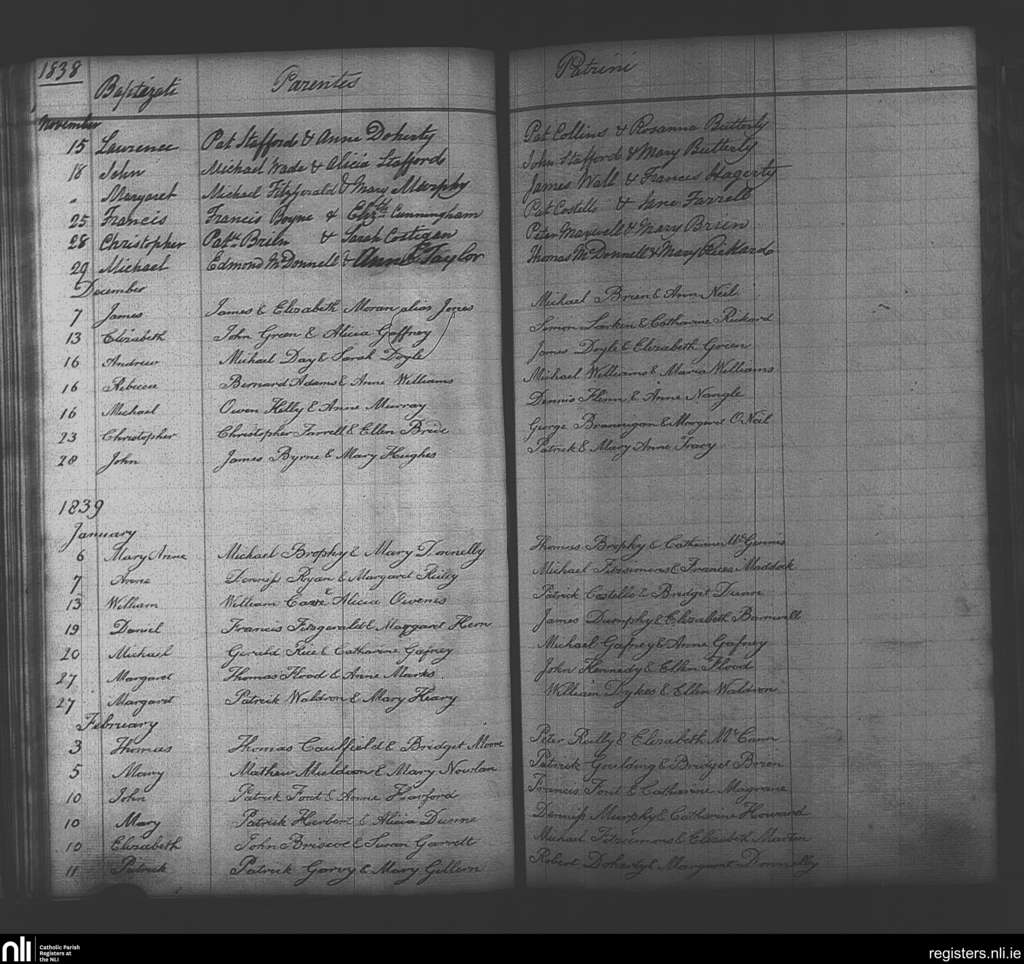 1838
Baptizati Parentes Patrini
November
15 Lawrence Pat Stafford & Anne Doherty Pat Collins & Rosanna Butterly
18 John Michael Wade & Alicia Stafford John Stafford & Mary Butterly
" Margaret Michael Fitzgerald & Mary Murphy James Wall & Frances Hagerty
25 Francis Francis Boyne & Elizth Cunningham Pat Costello & Jane Farrell
28 Christopher Patk Brien & Sarah Costigan Peter Maxwell & Mary Brien
29 Michael Edmond McDonnell & Anne Taylor Thomas McDonnell & Mary Rickard
December
7 James James & Elizabeth Moran alias Jones Michael Brien & Ann Neil
13 Elizabeth John Green & Alicia Gaffney Simon Larken & Catharine Rickard
16 Andrew Michael Day & Sarah Doyle James Doyle & Elizabeth Green
16 Rebecca Bernard Adams & Anne Williams Michael Williams & Maria Williams
16 Michael Owen Kelly & Anne Murray Dennis Flinn & Anne Nangle
23 Christopher Christopher Farrell & Ellen Bride George Brannigan & Margaret O'Neil
28 John James Byrne & Mary Hughes Patrick & Mary Anne Tracy
1839
January
6 Mary Anne Michael Brophy & Mary Donnelly Thomas Brophy & Catharine McGennis
7 Anne Dennis Ryan & Margaret Reilly Michael Fitzsimons & Frances Maddock
13 William William & Alicia Owens Patrick Costello & Bridget Dunne
19 Daniel Francis Fitzgerald & Margaret Hern James Dumphy & Elizabeth Barnwell
20 Michael Gerald Rice & Catharine Gafney Michael Gafney & Anne Gafney
27 Margaret Thomas Flood & Anne Marks John Kennedy & Ellen Flood
27 Margaret Patrick Waldron & Mary Heary William Dykes & Ellen Waldron
February
3 Thomas Thomas Caulfield & Bridget Moore Peter Reilly & Elizabeth McCann
5 Mary Mathew Muldoon & Mary Nowlan Patrick Goulding & Bridget Brien
10 John Patrick Ford & Annie Harford Francis Ford & Catharine Magrane
10 Mary Patrick Herbert & Alicia Dunne Dennis Murphy & Catharine Howard
10 Elizabeth John Briscoe & Susan Garrett Michael Fitzsimons & Elizabeth Martin
11 Patrick Patrick Garvy & Mary Gillern Robert Doherty & Margaret Donnelly
nli Catholic Parish Registers at the NLI
registers.nli.ie